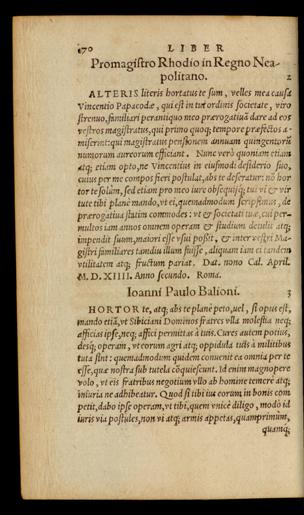 170 LIBER
Promagistro Rhodio in Regno Nea-
politano. 2
ALTERIS literis hortatus te sum, velles mea causa
Vincentio Papacodæ, qui est in tui ordinis societate, viro
strenuo, familiari perantiquo meo prærogatiuã dare ad eos
vestros magistratus, qui primo quoq; tempore præfectos a-
miserint: qui magistratus pensionem annuam quingentorũ
numorum aureorum efficiant. Nunc verò quoniam etiam
atq; etiam opto, ne Vincentius in eiusmodi desiderio suo,
cuius per me compos fieri postulat, abs te deseratur: nõ hor
tor te solùm, sed etiam pro meo iure obsequijq; tui vi & vir
tute tibi planè mando, vt ei, quemadmodum scripsimus, de
prærogatiua statim commodes: vt & societati tuæ, cui per-
multos iam annos omnem operam & studium detulit atq;
impendit suum, maiori esse vsui possit, & inter vestri Ma-
gistri familiares tamdiu illum fuisse, aliquam iam ei tandem
vtilitatem atq; fructum pariat. Dat. nono Cal. April.
M. D. XIIII. Anno secundo. Roma.
Ioanni Paulo Balioni. 3
HORTOR te, atq; abs te planè peto, vel, si opus est,
mando etiã, vt Sibiciani Dominos fratres vlla molestia neq;
afficias ipse, neq; affici permittas à tuis. Cures autem potius,
desq; operam, vt eorum agri atq; oppidula tuis à militibus
tuta sint: quemadmodum quidem conuenit ea omnia per te
esse, quæ nostra sub tutela cõquiescunt. Id enim magnopere
volo, vt eis fratribus negotium vllo ab homine temerè atq;
iniuria ne adhibeatur. Quod si tibi ius eorum in bonis com
petit, dabo ipse operam, vt tibi, quem vnicè diligo, modò id
iuris via postules, non vi atq; armis appetas, quamprimùm,
quamq;